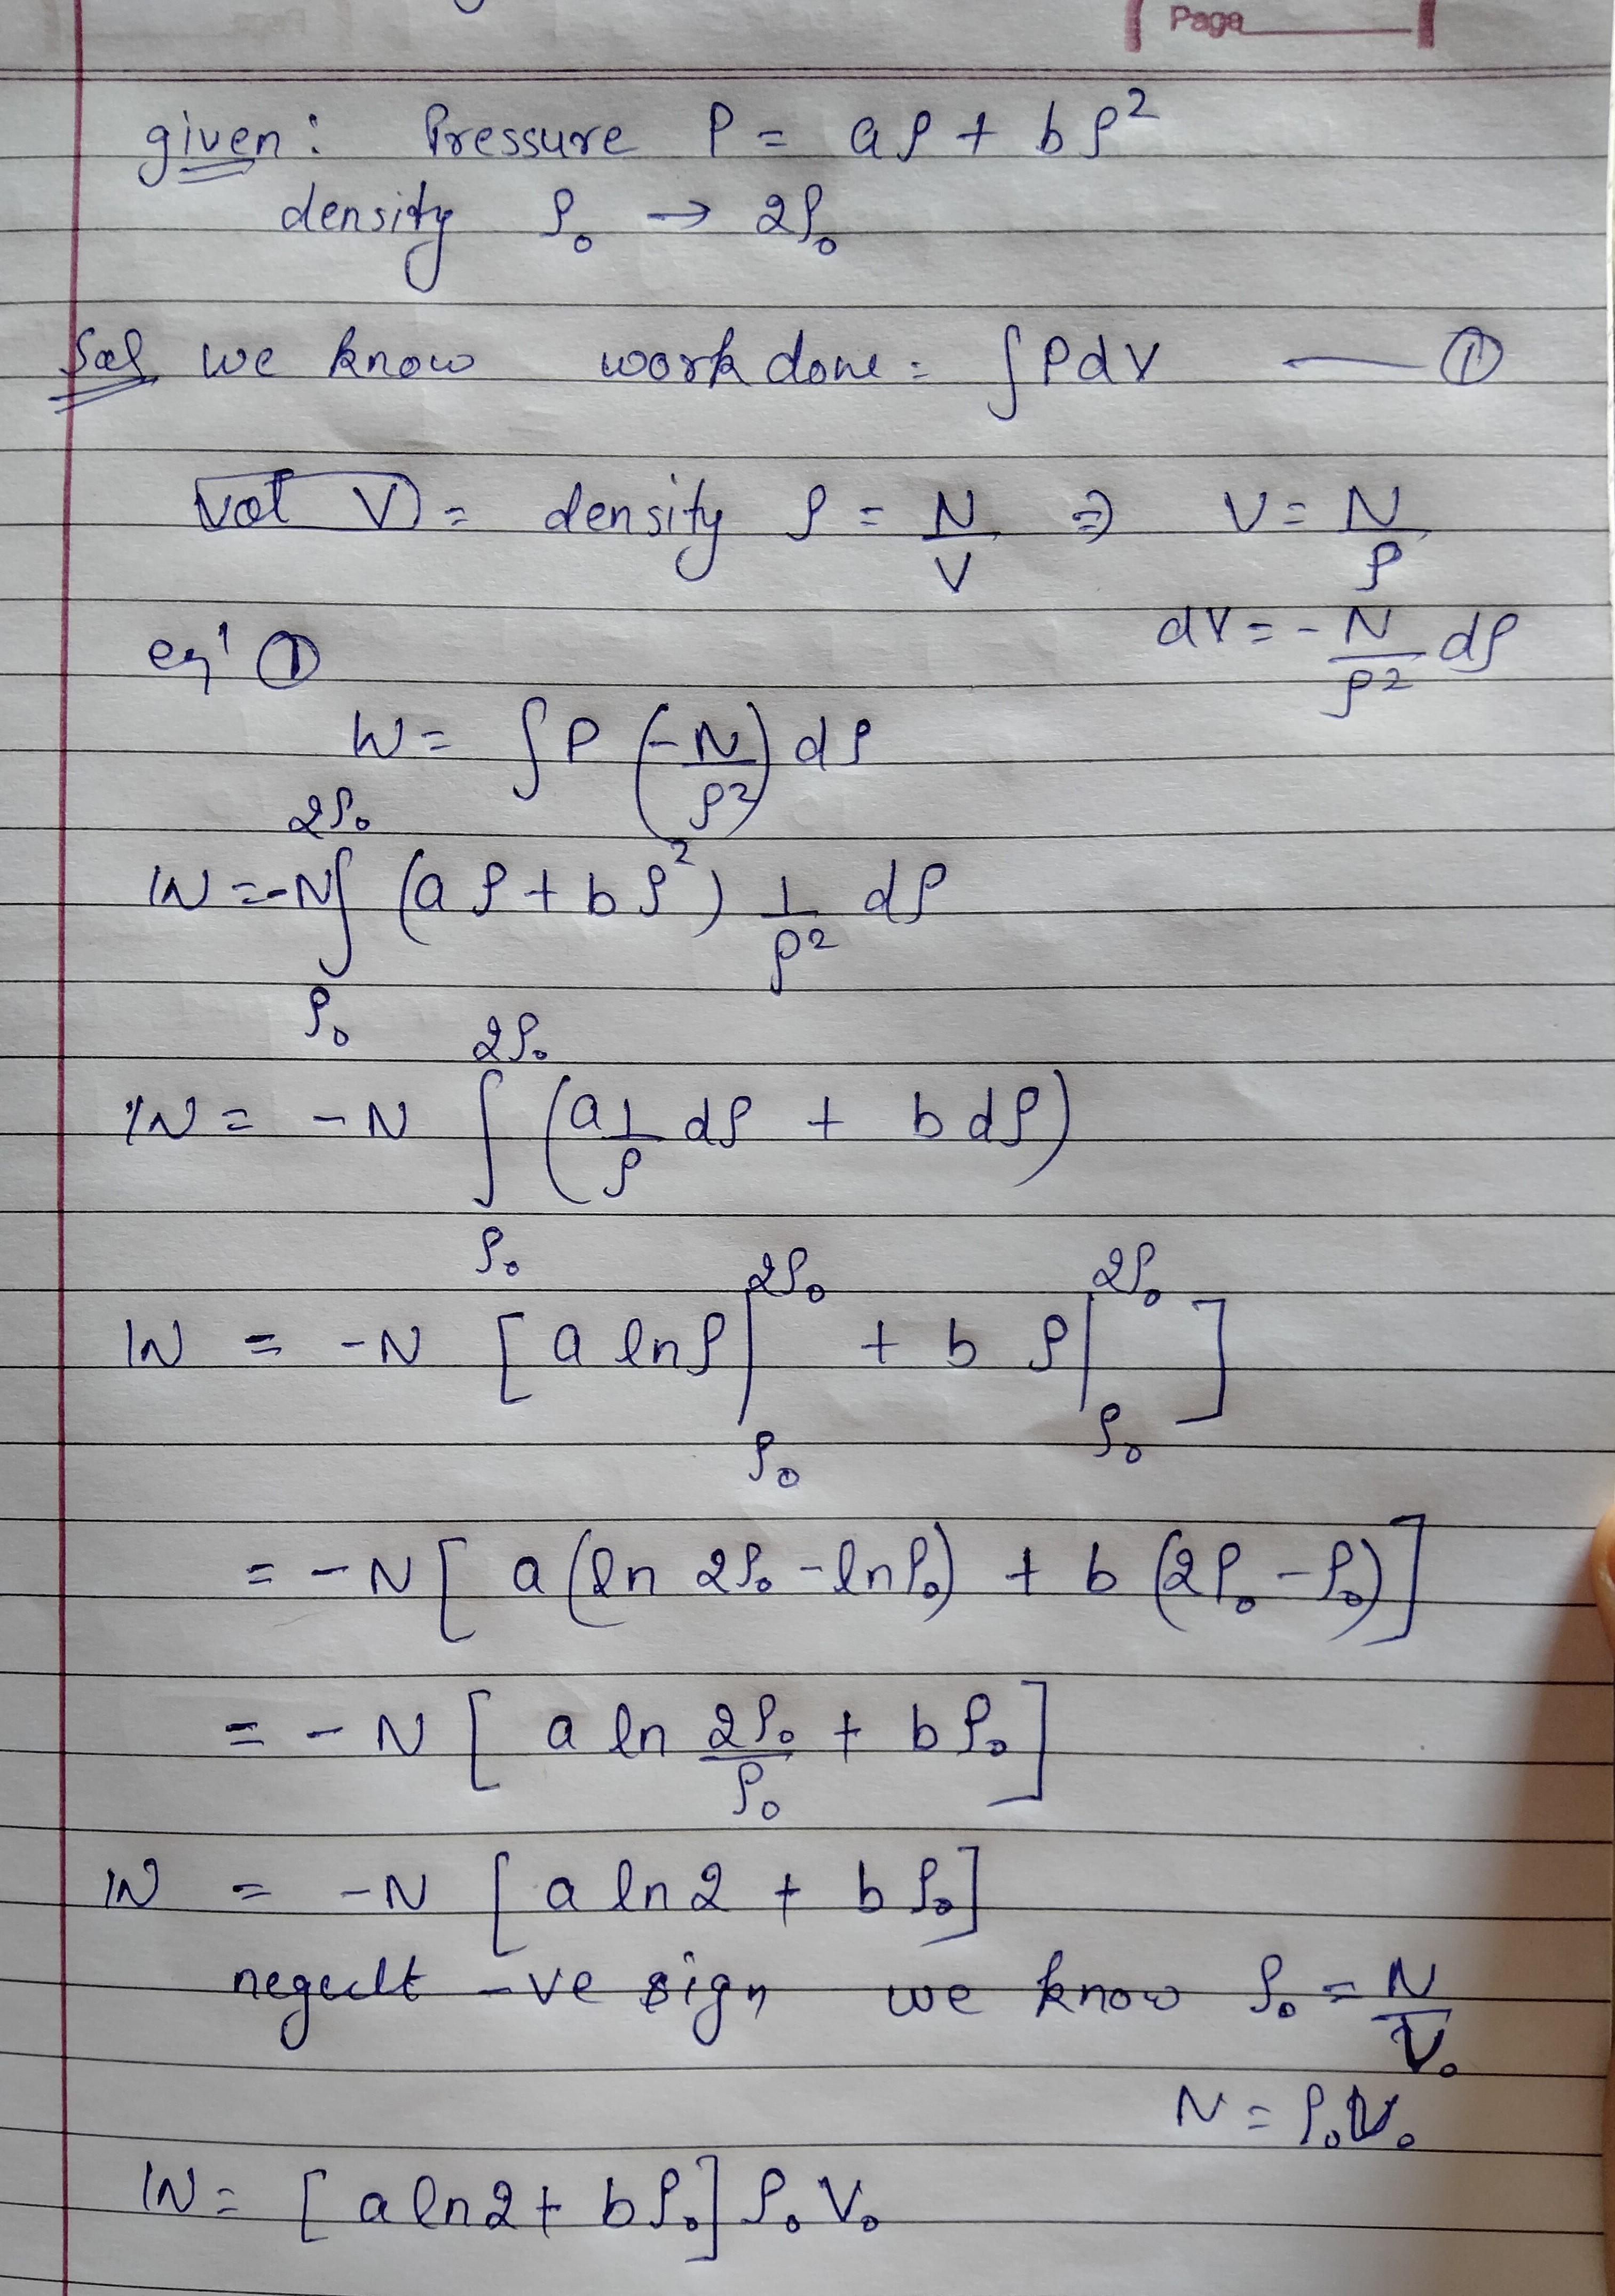 Page
given: Pressure P = aρ + bρ²
density ρ₀ → 2ρ₀
Sol we know work done = ∫PdV — ①
Vol V = density ρ = N/V ⇒ V = N/ρ
dV = -N/ρ² dρ
eqⁿ ①
W = ∫ P (-N/ρ²) dρ
W = -N ∫_{ρ₀}^{2ρ₀} (aρ + bρ²) 1/ρ² dρ
W = -N ∫_{ρ₀}^{2ρ₀} (a 1/ρ dρ + b dρ)
W = -N [a lnρ|_{ρ₀}^{2ρ₀} + b ρ|_{ρ₀}^{2ρ₀}]
= -N [a (ln 2ρ₀ - lnρ₀) + b (2ρ₀ - ρ₀)]
= -N [a ln 2ρ₀/ρ₀ + bρ₀]
W = -N [a ln2 + bρ₀]
-ve sign we know ρ₀ = N/V₀
N = ρ₀V₀
W = [a ln2 + bρ₀] ρ₀V₀